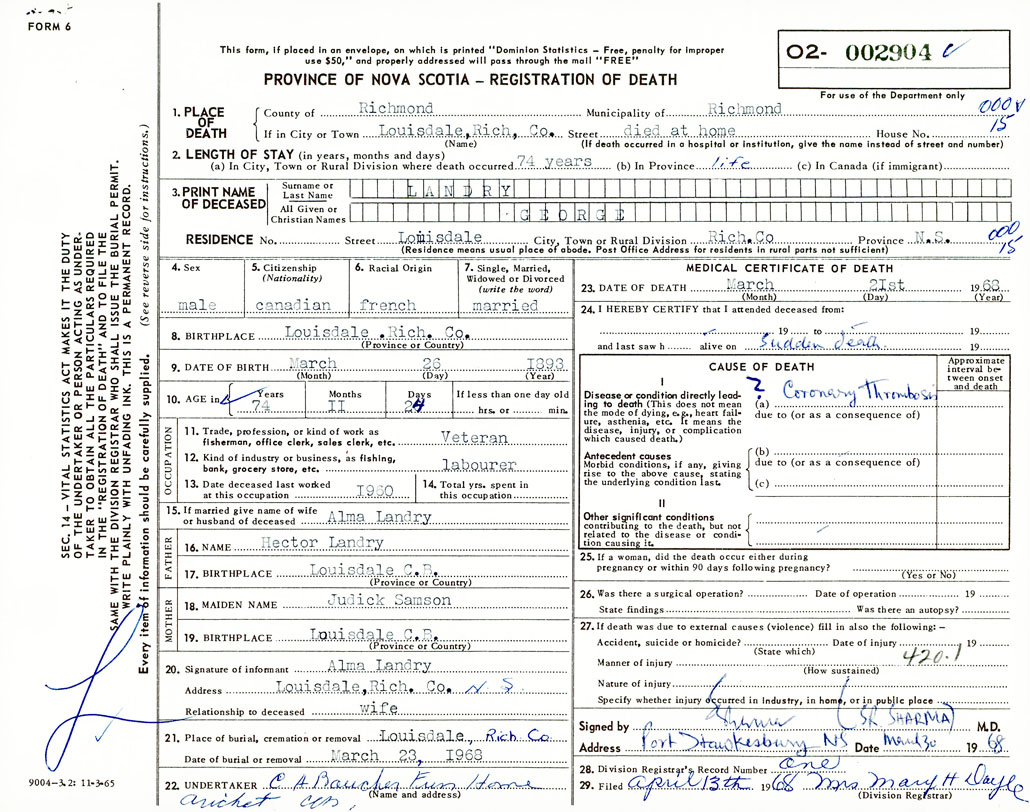 FORM 6
This form, if placed in an envelope, on which is printed "Dominion Statistics – Free, penalty for improper
use $50," and properly addressed will pass through the mail "FREE"
PROVINCE OF NOVA SCOTIA – REGISTRATION OF DEATH
O2- 002904
For use of the Department only
SEC. 14 – VITAL STATISTICS ACT MAKES IT THE DUTY
OF THE UNDERTAKER OR PERSON ACTING AS UNDER-
TAKER TO OBTAIN ALL THE PARTICULARS REQUIRED
IN THE "REGISTRATION OF DEATH" AND TO FILE THE
SAME WITH THE DIVISION REGISTRAR WHO SHALL ISSUE THE BURIAL PERMIT.
WRITE PLAINLY WITH UNFADING INK. THIS IS A PERMANENT RECORD.
Every item of information should be carefully supplied. (See reverse side for instructions.)
1. PLACE OF DEATH County of Richmond Municipality of Richmond 000 15
If in City or Town Louisdale,Rich, Co. Street died at home House No.
(Name) (If death occurred in a hospital or institution, give the name instead of street and number)
2. LENGTH OF STAY (in years, months and days)
(a) In City, Town or Rural Division where death occurred. 74 years (b) In Province life (c) In Canada (if immigrant)
3. PRINT NAME OF DECEASED Surname or Last Name LANDRY
All Given or Christian Names GEORGE
RESIDENCE No. Street Louisdale City, Town or Rural Division Rich.Co Province N.S. 000 15
(Residence means usual place of abode. Post Office Address for residents in rural parts not sufficient)
4. Sex 5. Citizenship (Nationality) 6. Racial Origin 7. Single, Married, Widowed or Divorced (write the word)
male canadian french married
8. BIRTHPLACE Louisdale .Rich. Co.
(Province or Country)
9. DATE OF BIRTH March 26 1893
(Month) (Day) (Year)
10. AGE in Years Months Days If less than one day old
74 II 24 hrs. or min.
OCCUPATION
11. Trade, profession, or kind of work as
fisherman, office clerk, sales clerk, etc. Veteran
12. Kind of industry or business, as fishing,
bank, grocery store, etc. labourer
13. Date deceased last worked at this occupation I960 14. Total yrs. spent in this occupation
15. If married give name of wife
or husband of deceased Alma Landry
FATHER
16. NAME Hector Landry
17. BIRTHPLACE Louisdale C.B.
(Province or Country)
MOTHER
18. MAIDEN NAME Judick Samson
19. BIRTHPLACE Louisdale C.B.
(Province or Country)
20. Signature of informant Alma Landry
Address Louisdale,Rich. Co. N.S.
Relationship to deceased wife
21. Place of burial, cremation or removal Louisdale, Rich Co.
Date of burial or removal March 23, I968
22. UNDERTAKER C A Boucher Fun Home
(Name and address)
Arichet
9004-3.2: 11-3-65
MEDICAL CERTIFICATE OF DEATH
23. DATE OF DEATH March 2Ist 1968
(Month) (Day) (Year)
24. I HEREBY CERTIFY that I attended deceased from:
19 to 19
and last saw h alive on Sudden death 19
CAUSE OF DEATH Approximate interval between onset and death
I
Disease or condition directly lead-
ing to death (This does not mean
the mode of dying, e.g., heart fail-
ure, asthenia, etc. It means the
disease, injury, or complication
which caused death.)
? (a) Coronary thrombosis
due to (or as a consequence of)
Antecedent causes
Morbid conditions, if any, giving
rise to the above cause, stating
the underlying condition last.
(b)
due to (or as a consequence of)
(c)
II
Other significant conditions
contributing to the death, but not
related to the disease or condi-
tion causing it.
25. If a woman, did the death occur either during
pregnancy or within 90 days following pregnancy?
(Yes or No)
26. Was there a surgical operation? Date of operation 19
State findings Was there an autopsy?
27. If death was due to external causes (violence) fill in also the following: –
Accident, suicide or homicide? Date of injury 19
(State which)
Manner of injury 420.1
(How sustained)
Nature of injury
Specify whether injury occurred in Industry, in home, or in public place
Signed by Sharma (SR SHARMA) M.D.
Address Port Hawkesbury NS Date 1968
28. Division Registrar's Record Number One
29. Filed April 13th 1968 Mrs Mary H Doyle
(Division Registrar)